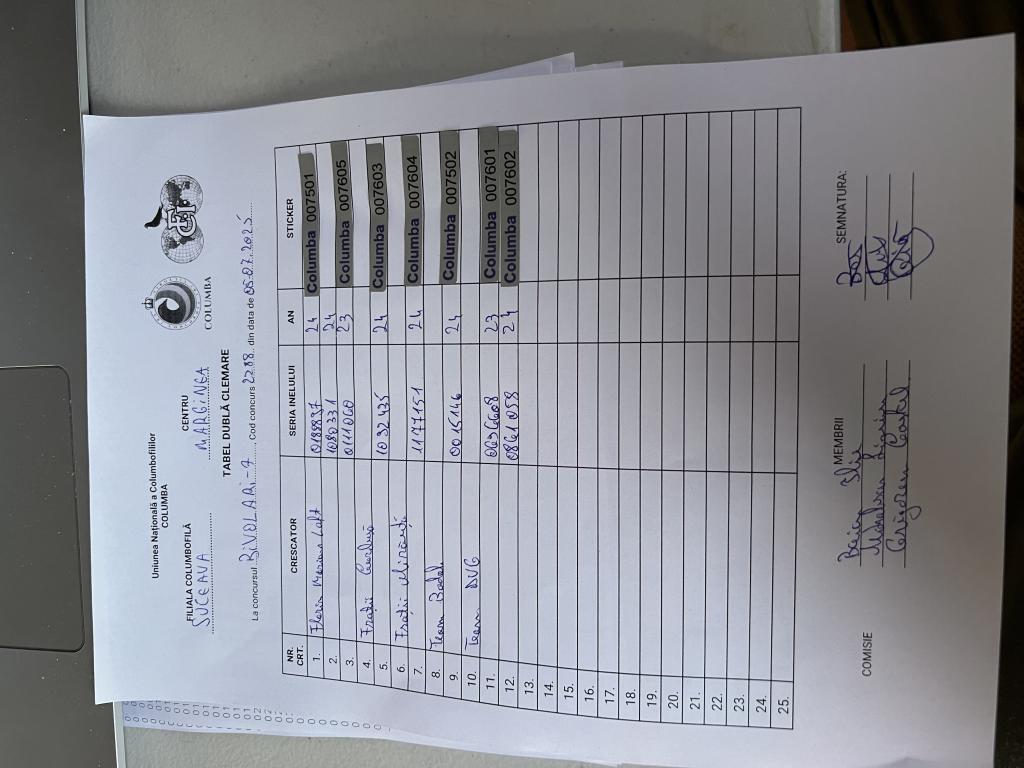 Uniunea Națională a Columbofililor
COLUMBA
COLUMBA
FILIALA COLUMBOFILĂ
SUCEAVA
CENTRU
MARGINEA
TABEL DUBLĂ CLEMARE
La concursul BIVOLARI-4 Cod concurs 2288 din data de 05.07.2025
NR. CRT. CRESCATOR SERIA INELULUI AN STICKER
1. Florin Marius Loft 0188837 24 Columba 007501
2. 1080331 24
3. 0111060 23 Columba 007605
4. Frații
5. 1032435 24 Columba 007603
6. Frații
7. 1177151 24 Columba 007604
8. Team
9. 0015146 24 Columba 007502
10. Team DVG
11. 0636608 23 Columba 007601
12. 0861058 24 Columba 007602
13.
14.
15.
16.
17.
18.
19.
20.
21.
22.
23.
24.
25.
COMISIE MEMBRII SEMNATURA: